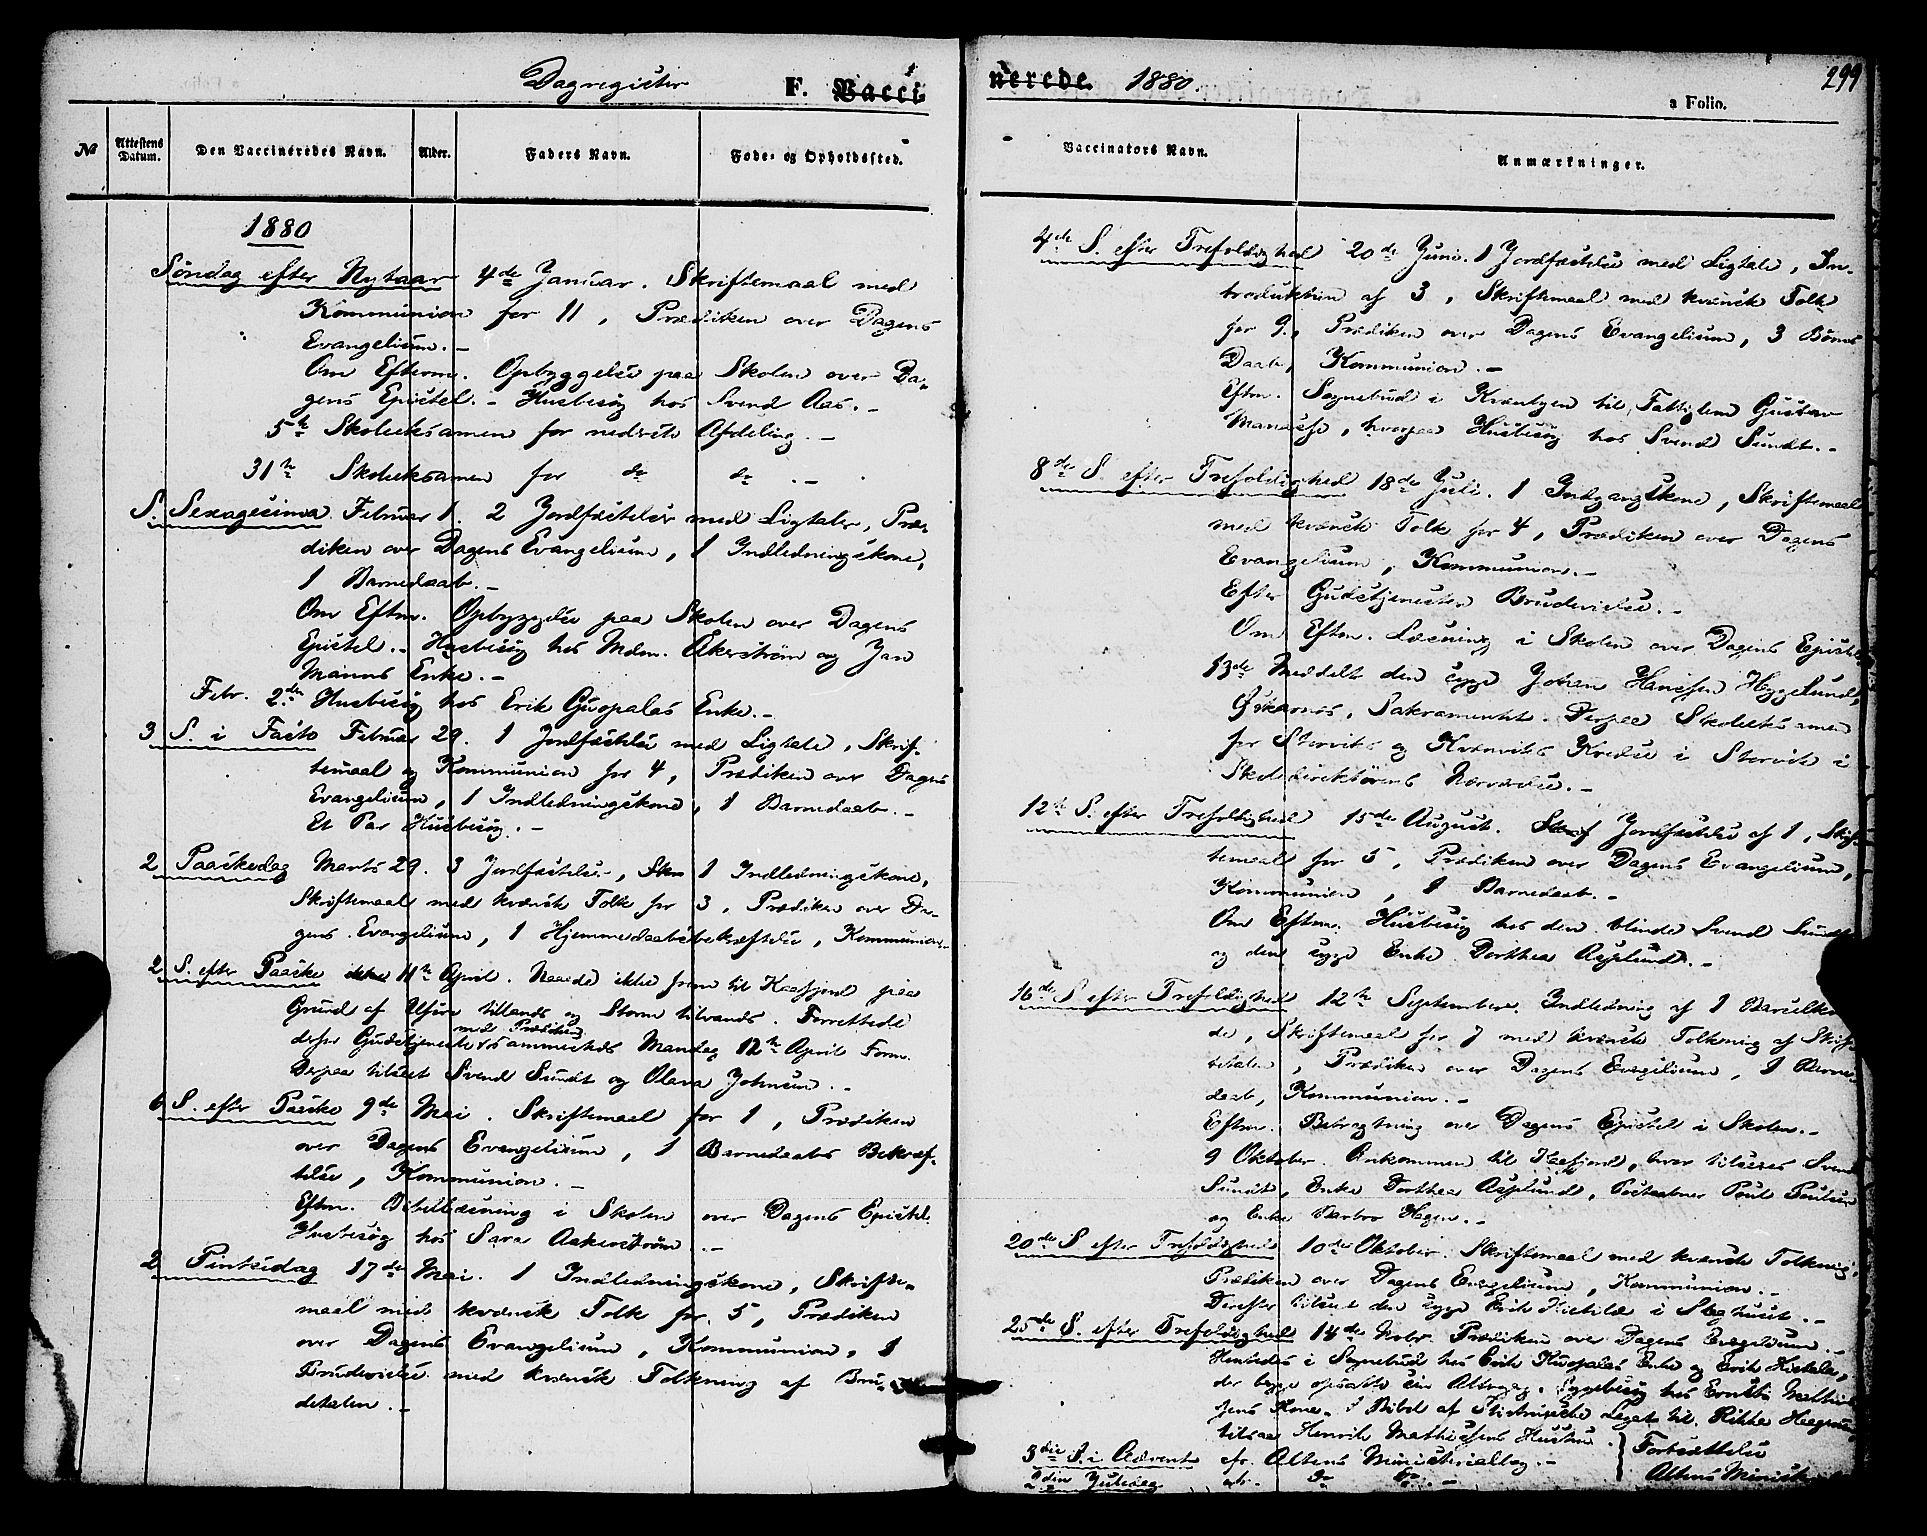 Dagregister F. Vacci
nerede. 1880.
299
a Folio.
No
Attestens Datum.
Den Vaccineredes Navn.
Alder.
Faders Navn.
Føde- og Opholdssted.
Vaccinators Navn.
Anmærkninger.
1880
Søndag efter Nytaar 4de Januar. Skriftemaal med
Kommunion for 11, Prædiken over Dagens
Evangelium.-
Om Efterm. Opbyggelse paa Skolen over Da-
gens Epistel.- Husbesøg hos Svend Aas.-
5te Skoleeksamen for nederste Afdeling.-
31te Skoleeksamen for do do.-
S. Sexagesima. Februar 1. 2 Jordfæstelser med Ligtaler, Præ-
diken over Dagens Evangelium, 1 Indledningskone,
1 Barnedaab.-
Om Eftm. Opbyggelse paa Skolen over Dagens
Epistel.- Husbesøg hos Mdm. Åkerstrøm og Jan
Manns Enke.-
Febr. 2den Husbesøg hos Erik Guopalas Enke.-
3 S. i Faste Februar 29. 1 Jordfæstelse med Ligtale, Skrif-
temaal og Kommunion for 4, Prædiken over Dagens
Evangelium, 1 Indledningskone, 1 Barnedaab.-
Et Par Husbesøg.-
2 Paaskedag Marts 29. 3 Jordfæstelser, 1 Indledningskone,
Skriftemaal med kvænsk Tolk for 3, Prædiken over Da-
gens Evangelium, 1 Hjemmedaabsbekræftelse, Kommunion.-
2 S. efter Paaske 11te April. Naaede ikke frem til Kaafjord paa
Grund af Uføre tillands og Storm tilvands. Forrettede
med Prædiken
derfor Gudstjeneste sammesteds Mandag 12te April Form.
Derpaa tilseet Svend Sundt og Olava Johnsen.-
6 S. efter Paaske 9de Mai. Skriftemaal for 1, Prædiken
over Dagens Evangelium, 1 Barnedaabs Bekræf-
telse, Kommunion.-
Eftm. Bibellæsning i Skolen over Dagens Epistel.
Husbesøg hos Sara Aakerstrøm.-
2 Pintsedag 17de Mai. 1 Indledningskone, Skrifte-
maal med kvænsk Tolk for 5, Prædiken
over Dagens Evangelium, Kommunion, 1
Brudevielse med kvænsk Tolkning af Bru-
detalen.-
4de S. efter Trefoldighed 20de Juni. 1 Jordfæstelse med Ligtale, In-
troduktion af 3, Skriftemaal med kvænsk Tolk
for 9, Prædiken over Dagens Evangelium, 3 Børns
Daab, Kommunion.-
Eftm. Sognebud i Kvænbyen til Fattiglem Gustav
Manasse, hvorpaa Husbesøg hos Svend Sundt.-
8de S. efter Trefoldighed 18de Juli. 1 Indgangskone, Skriftemaal
med kvænsk Tolk for 4, Prædiken over Dagens
Evangelium, Kommunion.-
Efter Gudstjenesten Brudevielse.-
Om Eftm. Læsning i Skolen over Dagens Epistel
13de Meddelt den syge Johan Hansen Heggelund,
Øskarnes, Sakramentet. Derpaa Skoleeksamen
for Storviks og Kvænviks Kredse i Storvik i
Skoledirektørens Nærværelse.-
12te S. efter Trefoldighed 15de August. Jordfæstelse af 1, Skrif-
temaal for 5, Prædiken over Dagens Evangelium,
Kommunion, 1 Barnedaab.-
Om Eftm. Husbesøg hos den blinde Svend Sundt
og den syge Enke Dorthea Asplund.-
16de S. efter Trefoldighed 12te September. Indledning af 1 Barselko-
ne, Skriftemaal for 7 med kvænsk Tolkning af Skrif-
tetalen, Prædiken over Dagens Evangelium, 1 Barne-
daab, Kommunion.-
Eftm. Betragtning over Dagens Epistel i Skolen.-
9 Oktober. Ankommen til Kaafjord, hvor tilsees Svend
Sundt, Enke Dorthea Asplund, Postaabner Poul Poulsen
og Enke Barbro Hagen.-
20de S. efter Trefoldighed 10de Oktober. Skriftemaal med kvænsk Tolkning,
Prædiken over Dagens Evangelium, Kommunion.-
Derefter tilseet den syge Erik Kietilæ i Steghuset.-
25de S. efter Trefoldighed 14de Novbr. Prædiken over Dagens Evangelium.-
Hentedes i Sognebud hos Erik Kuopalas Enke og Erik Kietala,
der begge opsatte sin Altergang. Sygebesøg hos
jens Kone. 1 Bibel af Legat til Rikka
tilsaa Henrik Mathiesens Hustru.
3die S. i Advent cfr. Altens Ministerialbog.-
2den Juledag do. do
Fortsættelse
Altens Minist